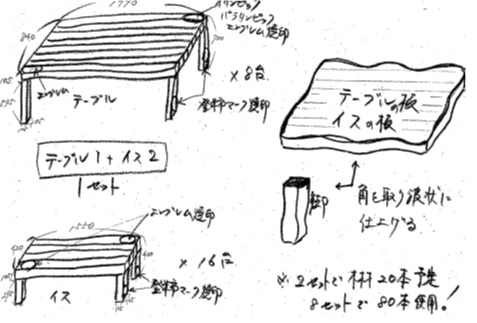 1770
オリンピック
パラリンピック
エンブレム焼印
840
700
×8台
エンブレム
テーブル
登米市マーク焼印
テーブルの板
イスの板
テーブル1+イス2
1セット
角を取り波状に
仕上げる
エンブレム焼印
1550
420
×16台
イス
登米市マーク焼印
※2セットで杉20本予定
8セットで80本使用!